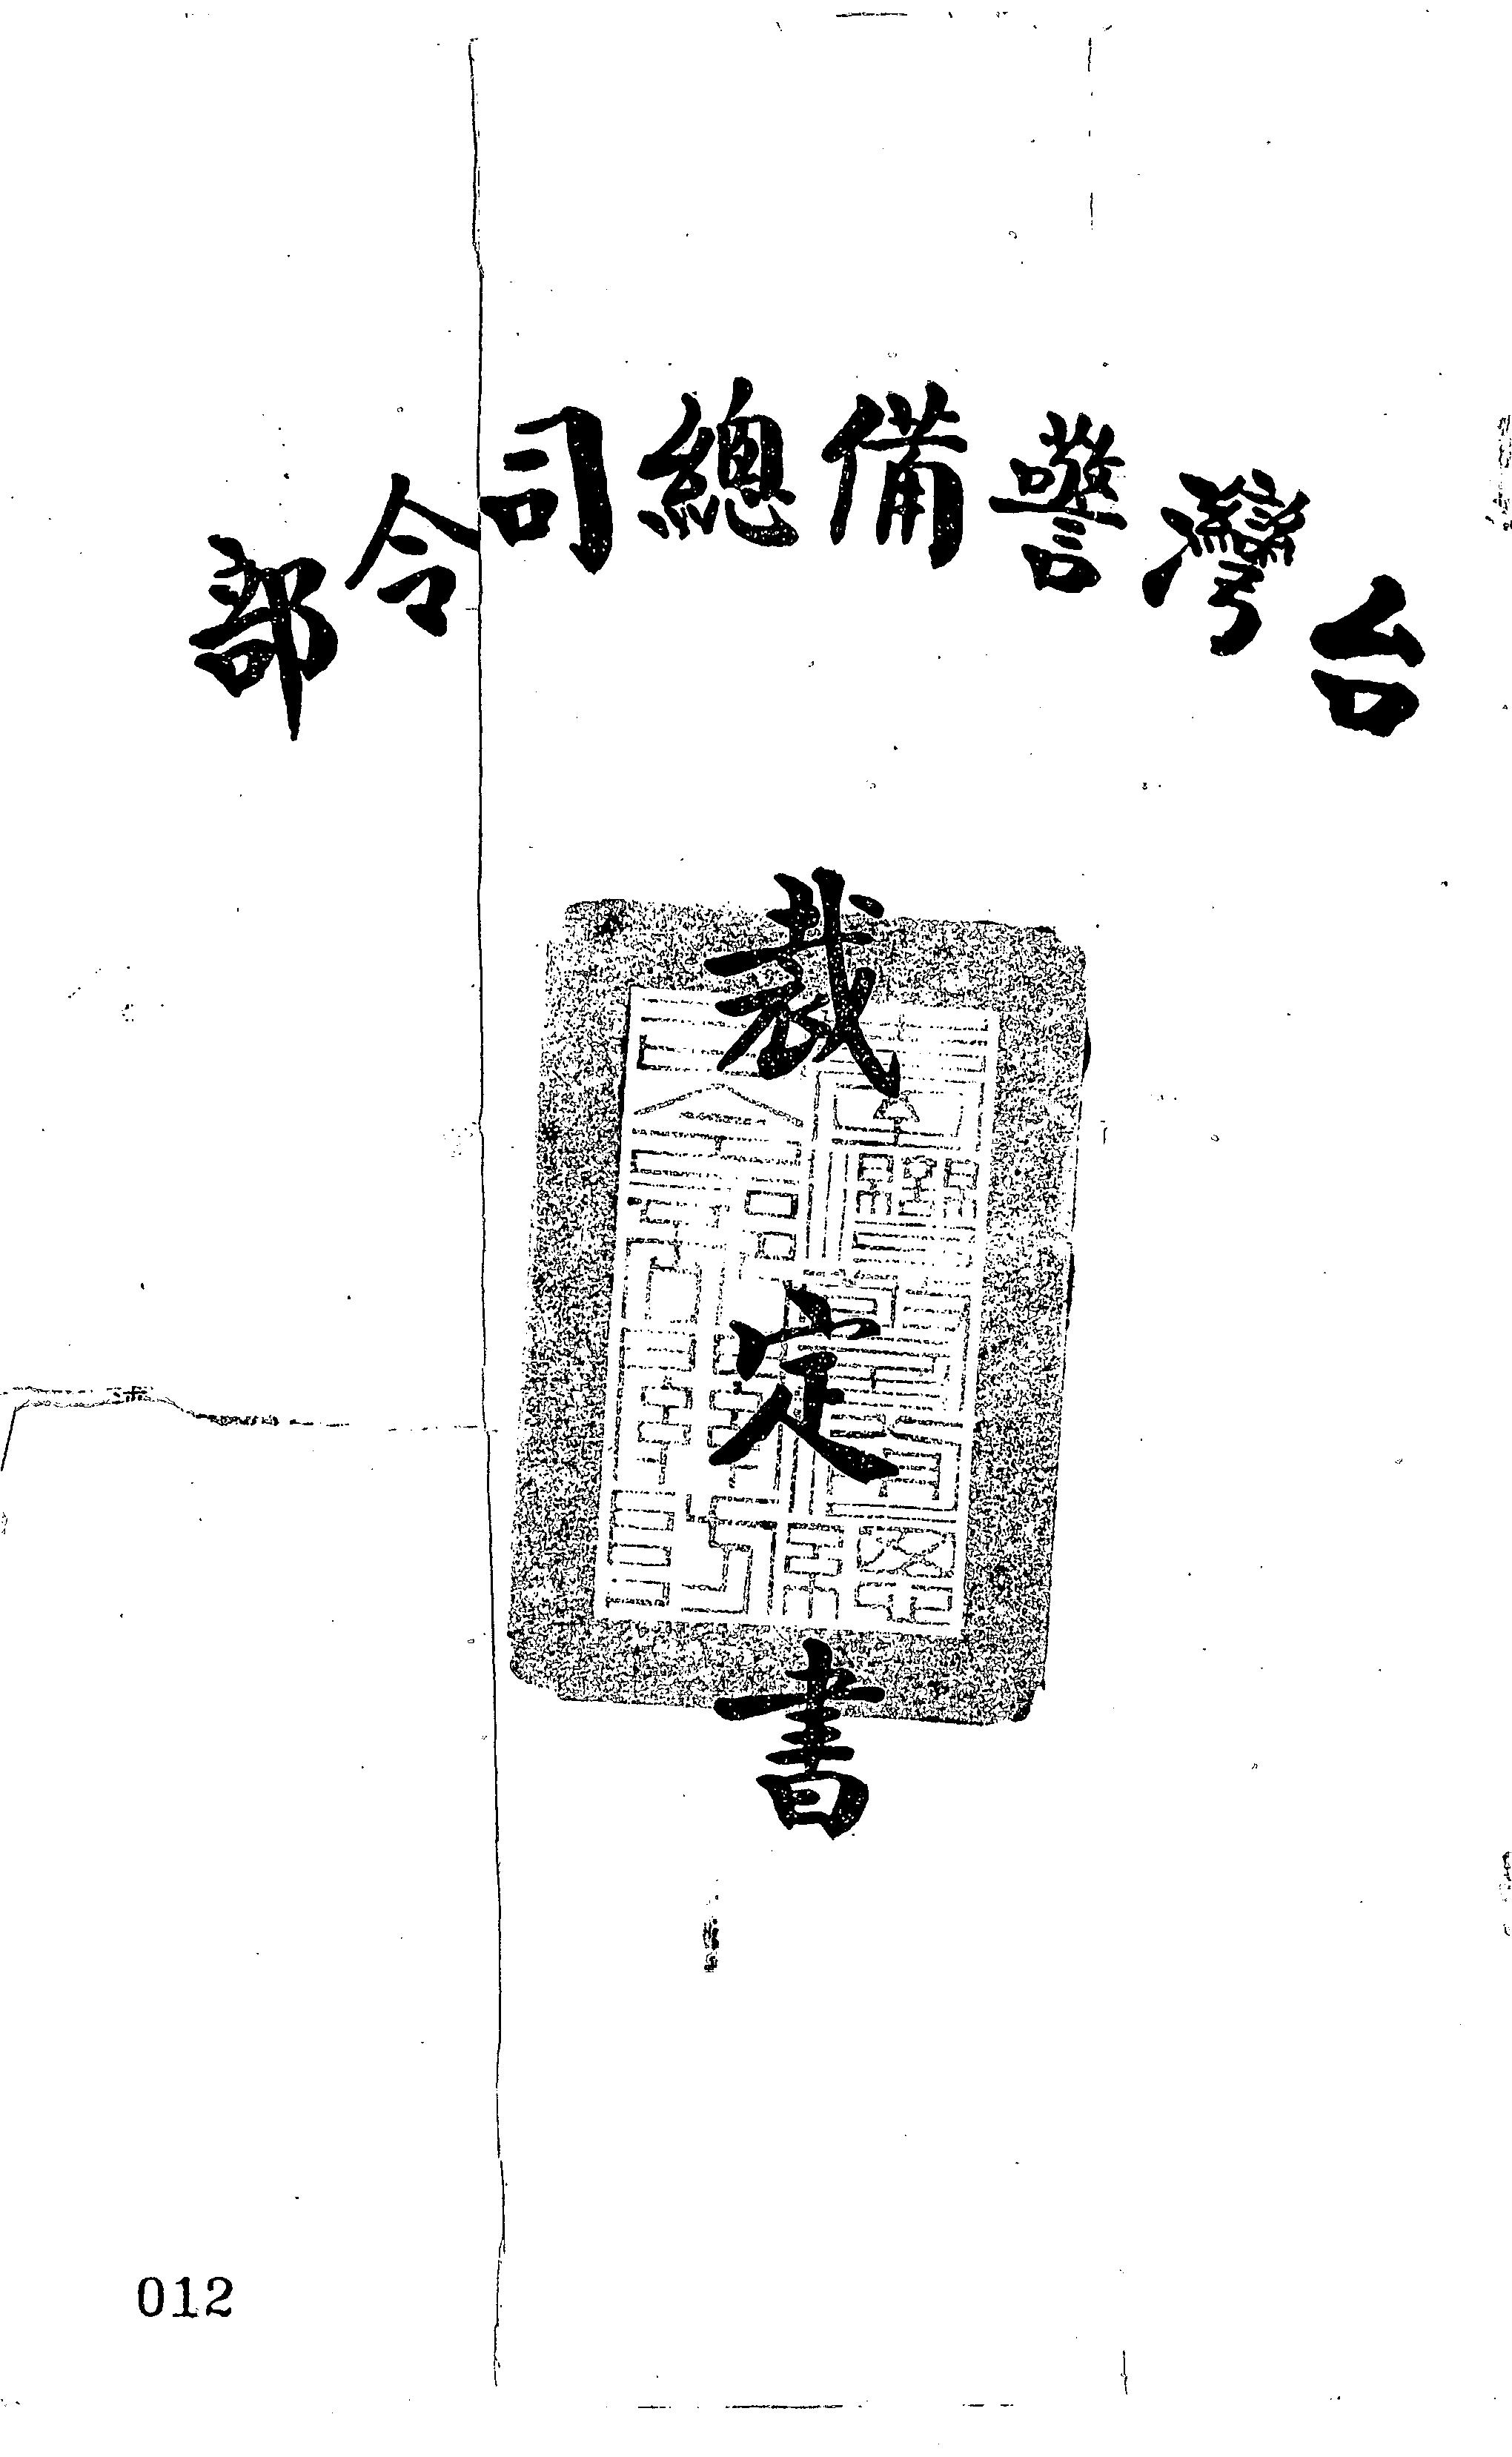 台灣警備總司令部
裁定書
012